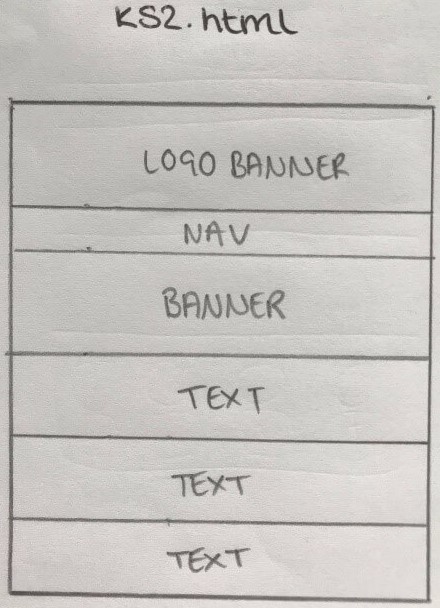 KS2.html
LOGO BANNER
NAV
BANNER
TEXT
TEXT
TEXT